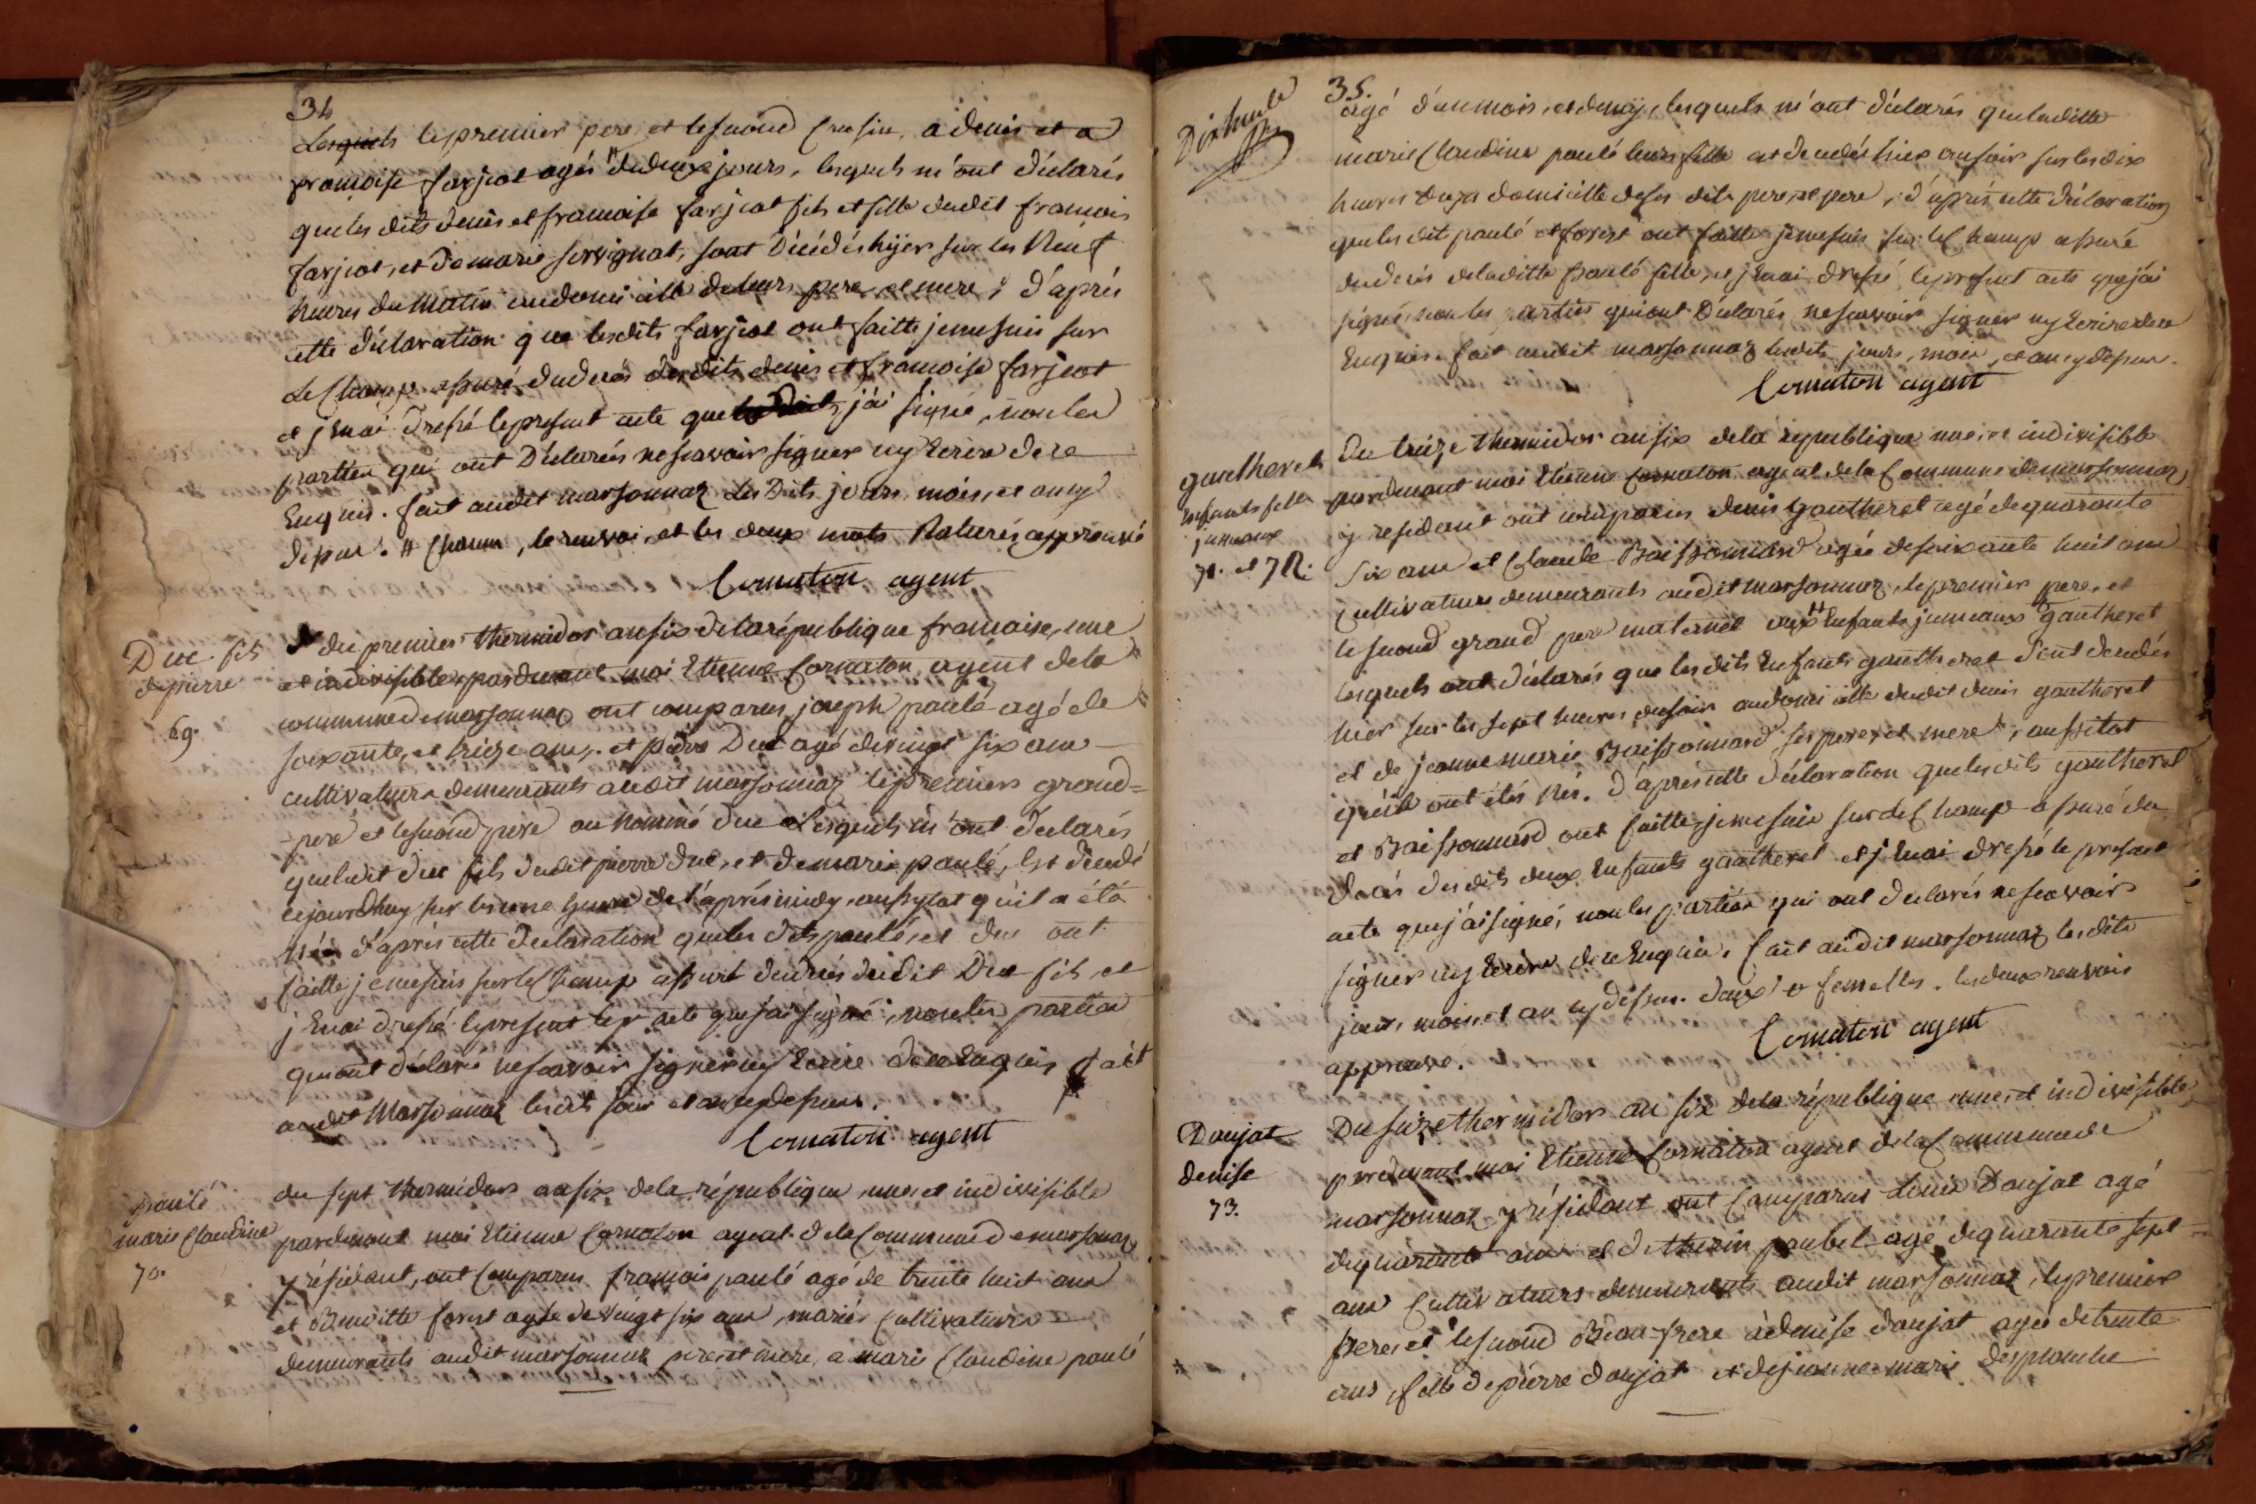 34
Lesquels le premier pere et le second Cousin, a denis et a
francoise farjeot agés de deux jours, lesquels m'ont déclarés
que les dits denis et francoise farjeot fils et fille dudit francois
farjeot, et de marie servignat, sont Décédés hÿer sur les Neuf
heures du Matin au domicille de leurs pere et mere; d'aprés
cette déclaration que lesdits farjeot ont faitte je me suis sur
Le Champ assuré du decés desdits denis et francoise farjeot
et j'enai dressé le present acte que j'ai signé, non les
parties qui ont Déclarés ne scavoir signer ny Ecrire de ce
Enquis. fait audit marsonnaz Les Dits jours, mois, et an cy
dessus. # Chacun, le renvoi, et les deux mots Raturés approuvé
Cornaton agent
Duc fils
de pierre
69.
du premier thermidor an six de la république francaise, une
et indivisible, pardevant moi Etienne Cornaton agent de la
commune de marsonnaz ont comparus joseph paulé agé de
soixante, et treize ans, et pierre Duc agé de vingt six ans
cultivateurs demeurants audit marsonnaz le premier grand=
pere et le second pere au nommé duc Lesquels m'ont déclarés
que ledit duc fils dudit pierre duc, et de marie paulé, Est décédé
cejourdhuy sur les une heure de l'aprés midy aussytot qu'il a été
Né: d'aprés cette déclaration que les dits paulé, et duc ont
faitte je me suis sur le Champ assuré du decés dudit Duc fils et
j'Enai dressé le present acte que j'ai signé, non les parties
qui ont déclaré ne scavoir signer ny Ecrire de ce Enquis fait
audit Marsonnaz lesdits jour et an cy dessus.
Cornaton agent
paulé
marie Claudine
70.
du sept thermidor an six de la république, une, et indivisible
pardevant moi Etienne Cornaton agent de la Commune de marsonnaz
y résidant, ont Comparus francois paulé agé de trente huit ans
et Benoitte forest agée de vingt six ans, mariés Cultivateurs
demeurants audit marsonnaz pere et mere, a marie Claudine paulé
35.
agé d'un mois, et demy, lesquels m'ont déclarés que laditte
marie Claudine paulé leurs fille est decedée hier au soir sur les dix
heures au domicille de ses dits pere, et pere, d'aprés cette déclaration
que les dit paulé et forest ont faitte je me suis sur le Champ assuré
du decés de laditte paulé fille, et j'Enai dressé le present acte que j'ai
signé, non les parties qui ont Déclarés ne scavoir signer ny Ecrire de ce
Enquis. fait audit marsonnaz lesdits jours, mois, et an cy dessus.
Cornaton agent
gautheret
enfants fille
jumeaux
71. et 72.
Du treize thermidor an six de la république une, et indivisible
pardevant moi Etienne Cornaton agent de la Commune de marsonnaz
y residant ont comparus denis gautheret agé de quarante
six ans et Claude Boissonnard agée de soixante huit ans
Cultivateurs demeurants audit marsonnaz, le premier pere, et
le second grand pere maternel aux # Enfants jumeaux gautheret
lesquels ont déclarés que les dits Enfants gautheret sont decedés
hier sur les sept heures du soir au domicille dudit denis gautheret
et de jeanne marie Boissonnard ses pere, et mere, aussitot
qu'ils ont étés Nés. D'aprés cette déclaration que les dits gautheret
et Boissonnard ont faitte, je me suis sur le Champ assuré du
decés desdits deux Enfants gautheret et j'Enai dressé le present
acte que j'ai signé, non les parties qui ont declarés ne scavoir
signer ny Ecrire de ce Enquis. fait audit marsonnaz lesdits
jours, mois, et an cy dessus. deux # femelles. les deux renvois
approuvé.
Cornaton agent
Danjat
denise
73.
Du seize thermidor an six de la république une, et indivisible
pardevant moi Etienne Cornaton agent de la Commune de
marsonnaz y résidant ont Comparus Danjat agé
de quarante ans et de paubel agé de quarante sept
ans Cultivateurs demeurants audit marsonnaz, le premier
frere, et le second Beau-frere à denise danjat agée de trente
ans, fille de pierre danjat et de jeanne marie desplanche